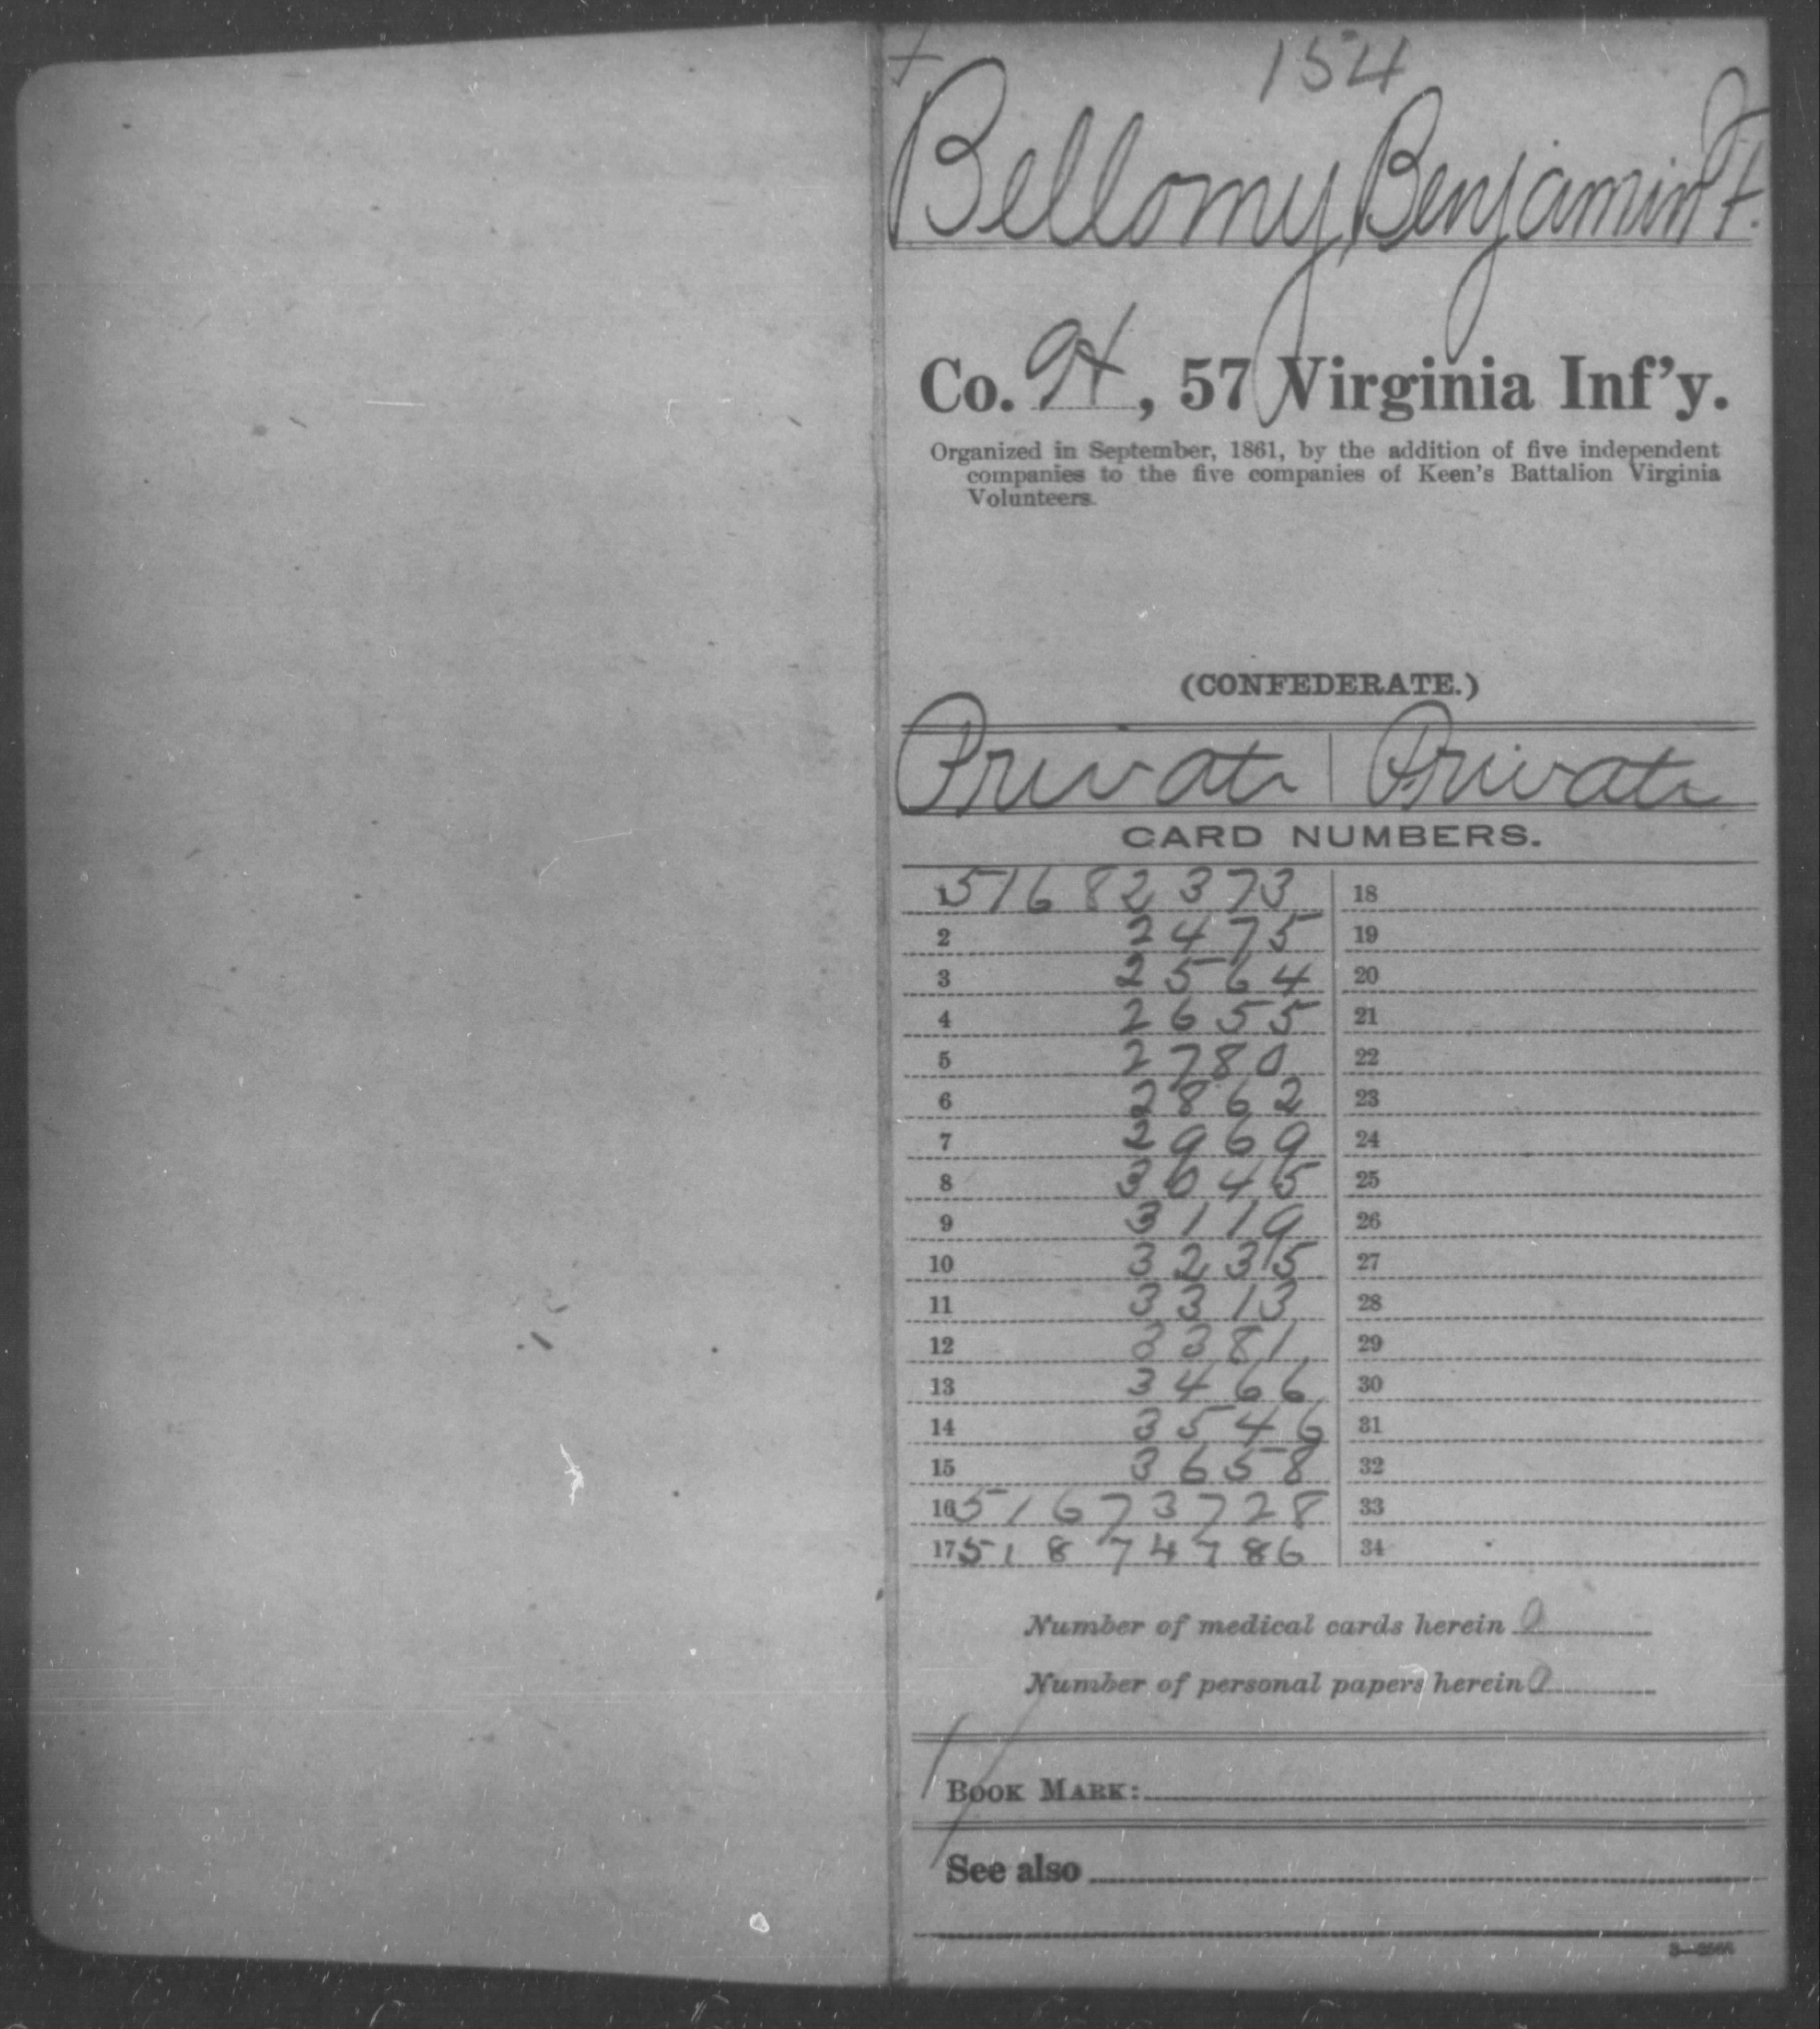 154
Bellomy, Benjamin F.
Co. H, 57 Virginia Inf'y.
Organized in September, 1861, by the addition of five independent
companies to the five companies of Keen's Battalion Virginia
Volunteers.
(CONFEDERATE.)
Private | Private
CARD NUMBERS.
1 51682373 18
2 2475 19
3 2564 20
4 2655 21
5 2780 22
6 2862 23
7 2969 24
8 3045 25
9 3119 26
10 3235 27
11 3313 28
12 3381 29
13 3466 30
14 3546 31
15 3658 32
16 51673728 33
17 51874786 34
Number of medical cards herein 0
Number of personal papers herein 0
BOOK MARK:
See also